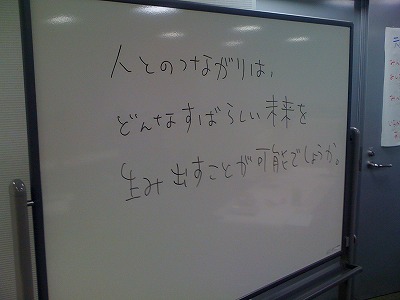 人とのつながりは、
どんなすばらしい未来を
生み出すことが可能でしょうか。